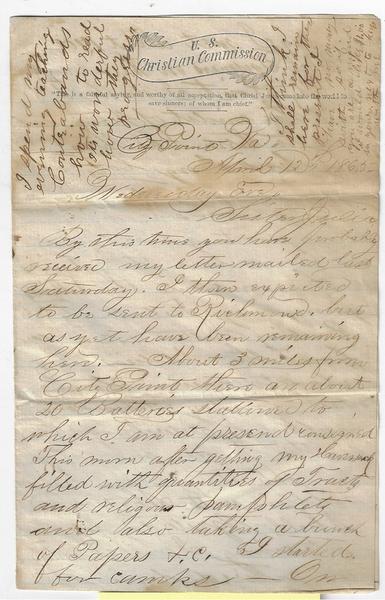 U. S.
Christian Commission
"This is a faithful saying, and worthy of all acceptation, that Christ Jesus came into the world to
save sinners; of whom I am chief."
City Point Va.
April 12th 1865
Wednesday Eve
Sister Julia
By this time you have probably
received my letter mailed last
Saturday. I then expected
to be sent to Richmond. but
as yet have been remaining
here. About 3 miles from
City Point there are about
20 Batteries stationed to
which I am at present consigned
This morn after getting my
filled with quantities of Tracts
and religious pamphlets
and also taking a bunch
of Papers &c. I started
for camps — On
I spen my
evenings teaching
Contrabands
how to read
Its wonderful
how they
progress
I think I
shall
been